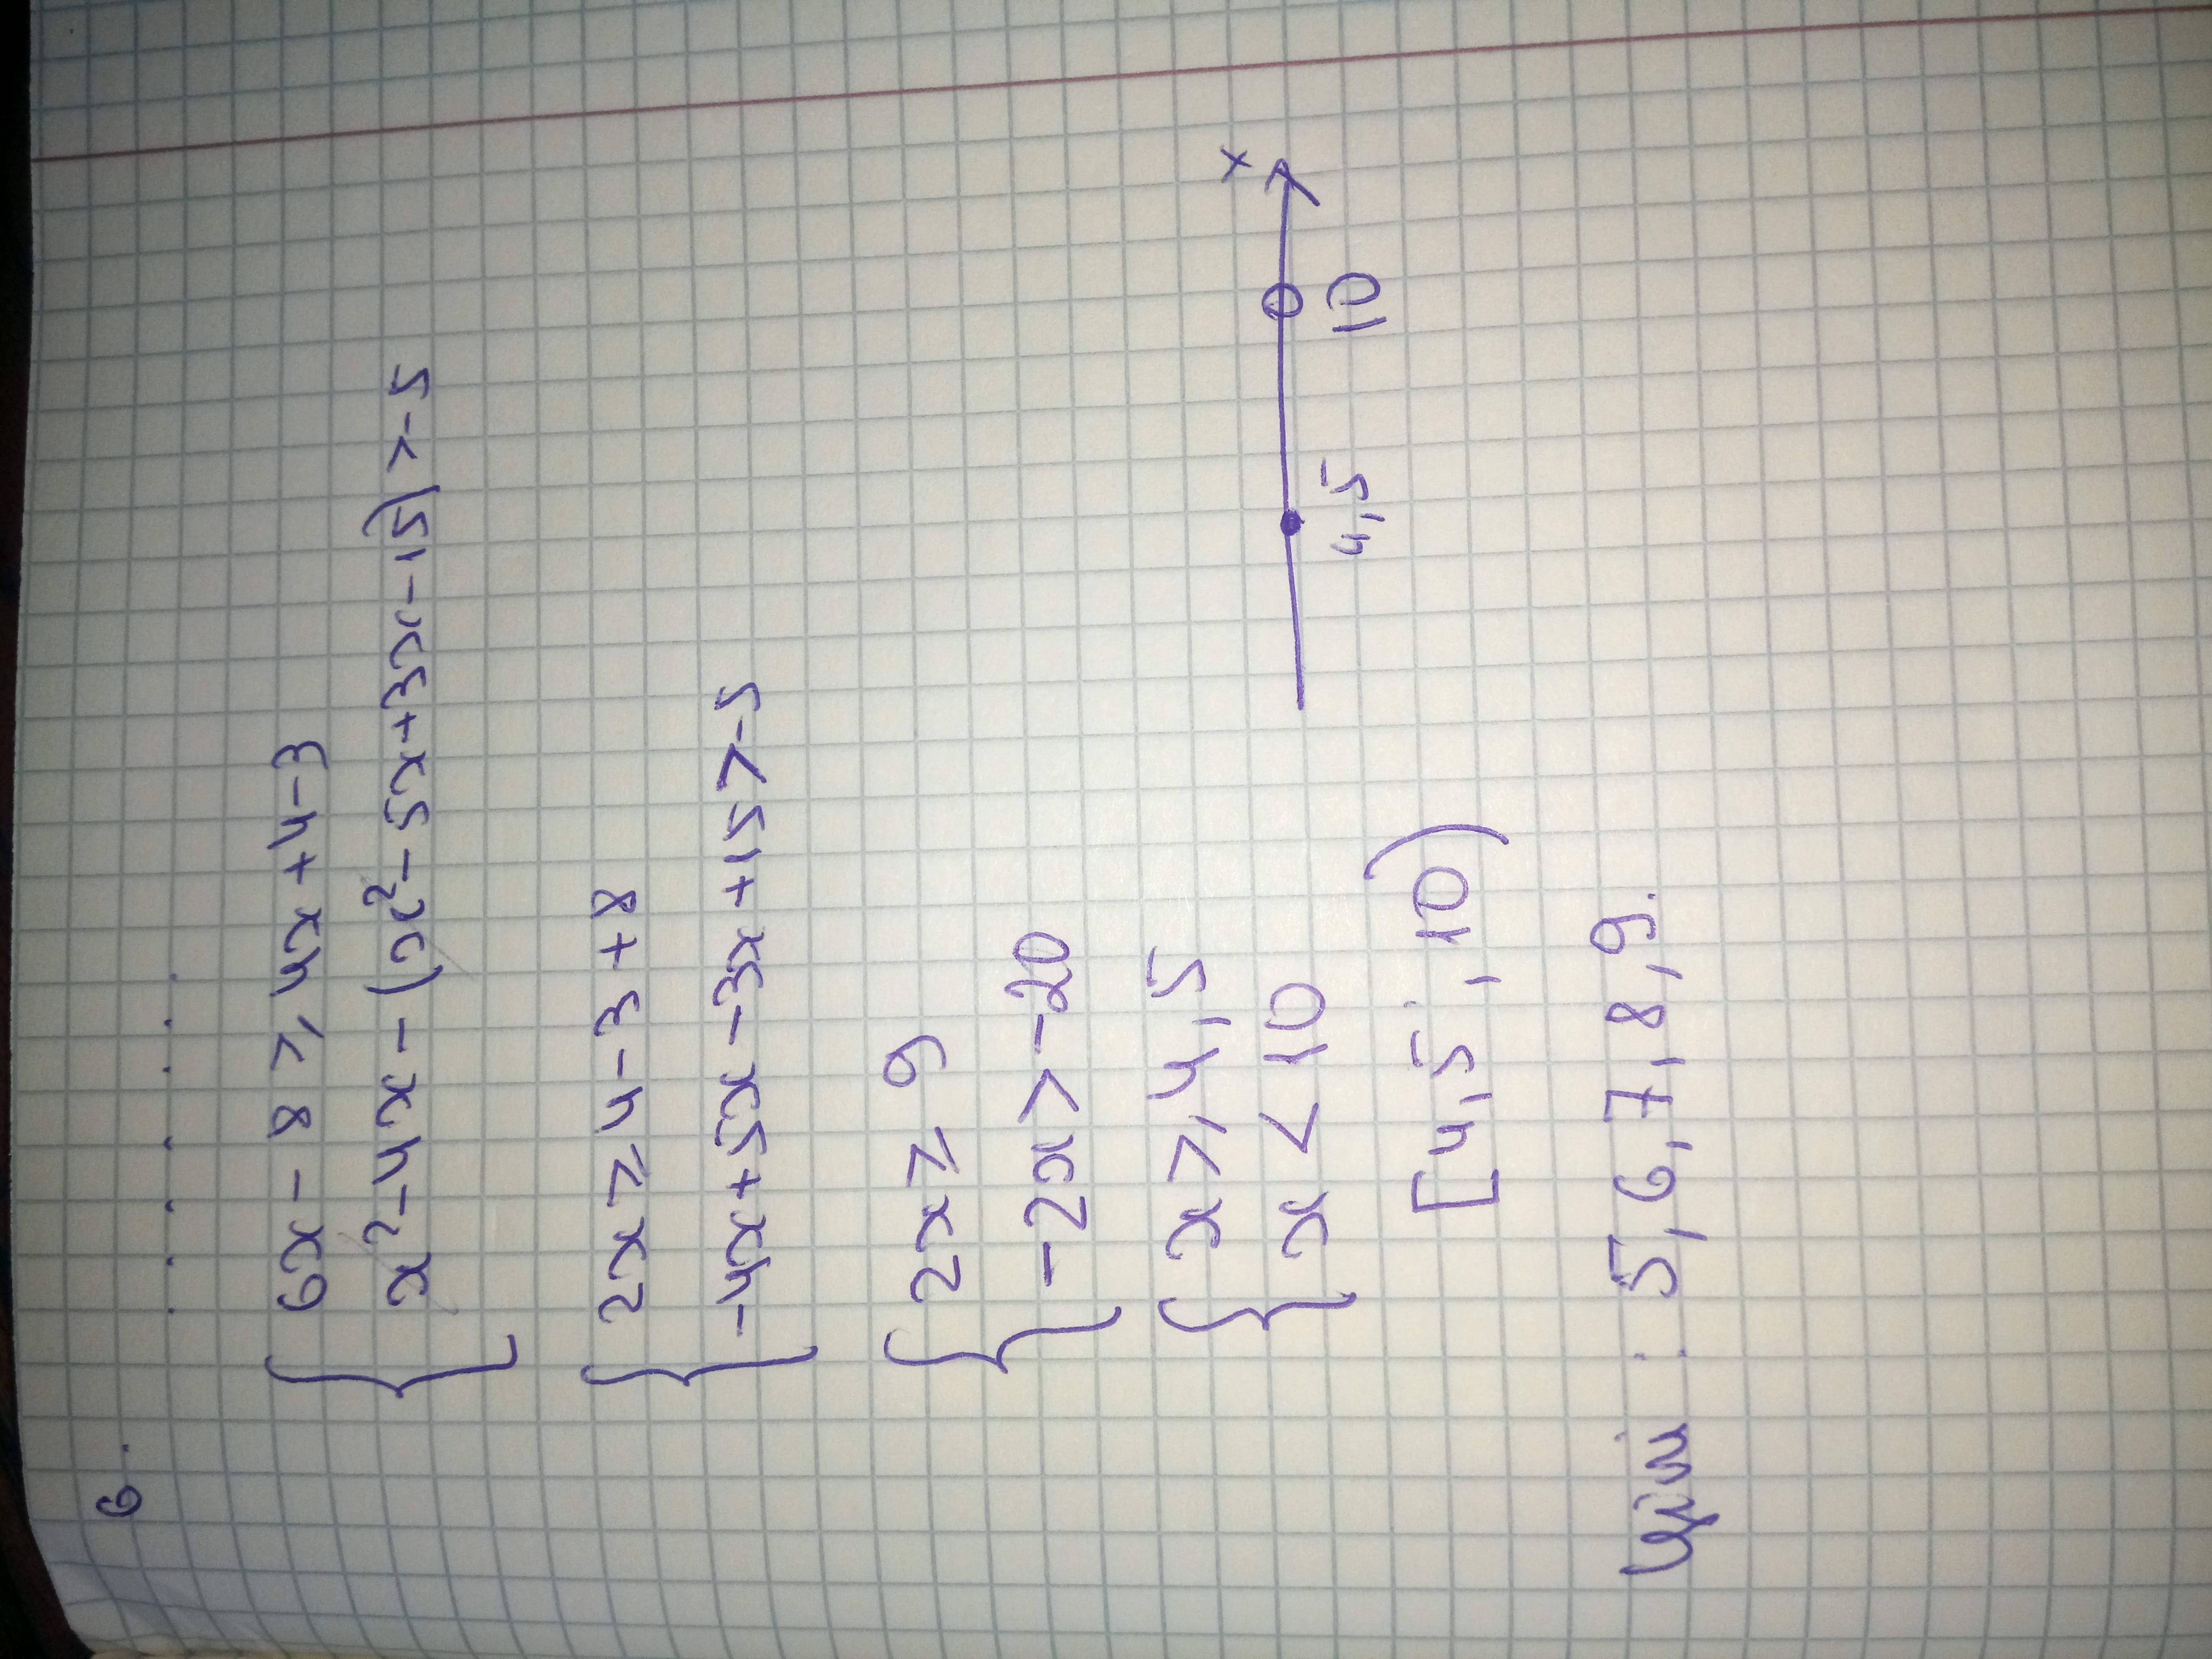 6.
. . . . . .
{ 6x - 8 ⩾ 4x + 4 - 3
x² - 4x - (x² - 5x + 3x - 15) > -5
{ 2x ⩾ 4 - 3 + 8
-4x + 5x - 3x + 15 > -5
{ 2x ⩾ 9
-2x > -20
{ x ⩾ 4,5
x < 10
x
4,5 10
[4,5 ; 10)
Цілі : 5, 6, 7, 8, 9.